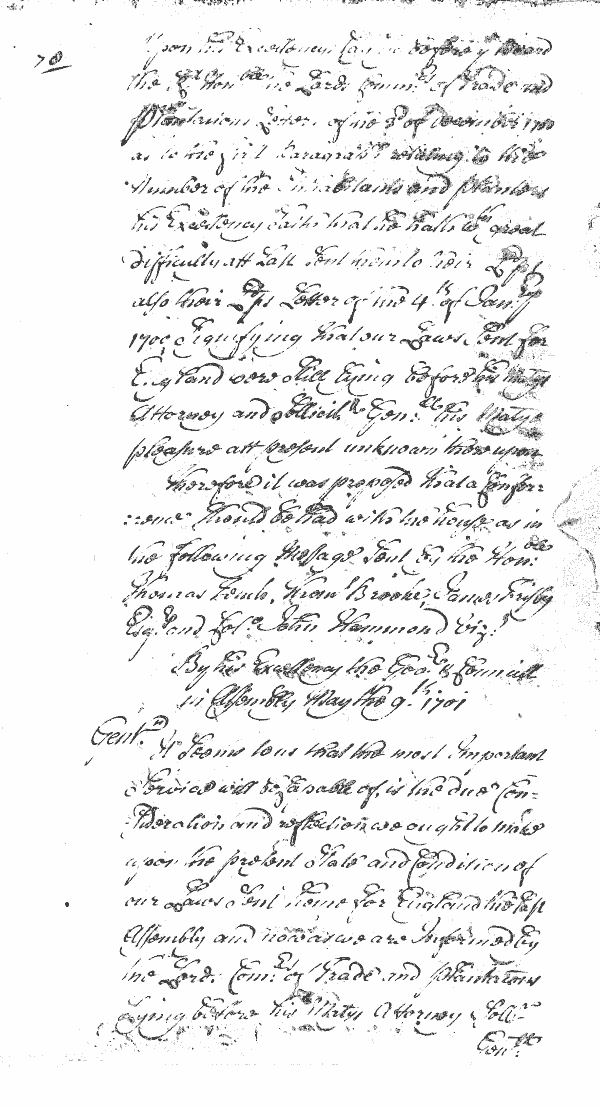 78
Upon his Excellency laying before ye Board
the Rt Honble the Lords Commrs of Trade and
Plantations Letter of the of December 1700
as to the first Paragraph relating to the
Number of the Inhabitants and Planters
his Excellency saith that he hath wth great
difficulty att Last Sent them to their Ldps
also their Ldps Letter of the 4th of Janry
1700 Signifying that our Laws Sent for
England were Still lying before his Matys
Attorney and Sollicitr Genll his Matys
pleasure att present unknown thereupon
Therefore it was proposed that a Confer:
:rence Should be had with the house as in
the following Message Sent by the Honble
Thomas Tench, Thoms Brooke, James Frisby
Esqrs and Colo John Hammond Vizt
By his Excellency the Govr & Councill
in Assembly May the 9th 1701
Gentn
It Seems to us that the most Important
Service will be capable of, is the due Con-
sideration and reflection we ought to make
upon the present State and Condition of
our Laws Sent home for England the last
Assembly and now as we are Informed by
the Lords Comrs of Trade and Plantations
Lying before his Matys Attorney & Sollr
Genll